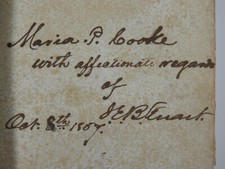 Maria P. Cooke
with affectionate regards
of
J.E.B. Stuart.
Oct. 8th 1857.